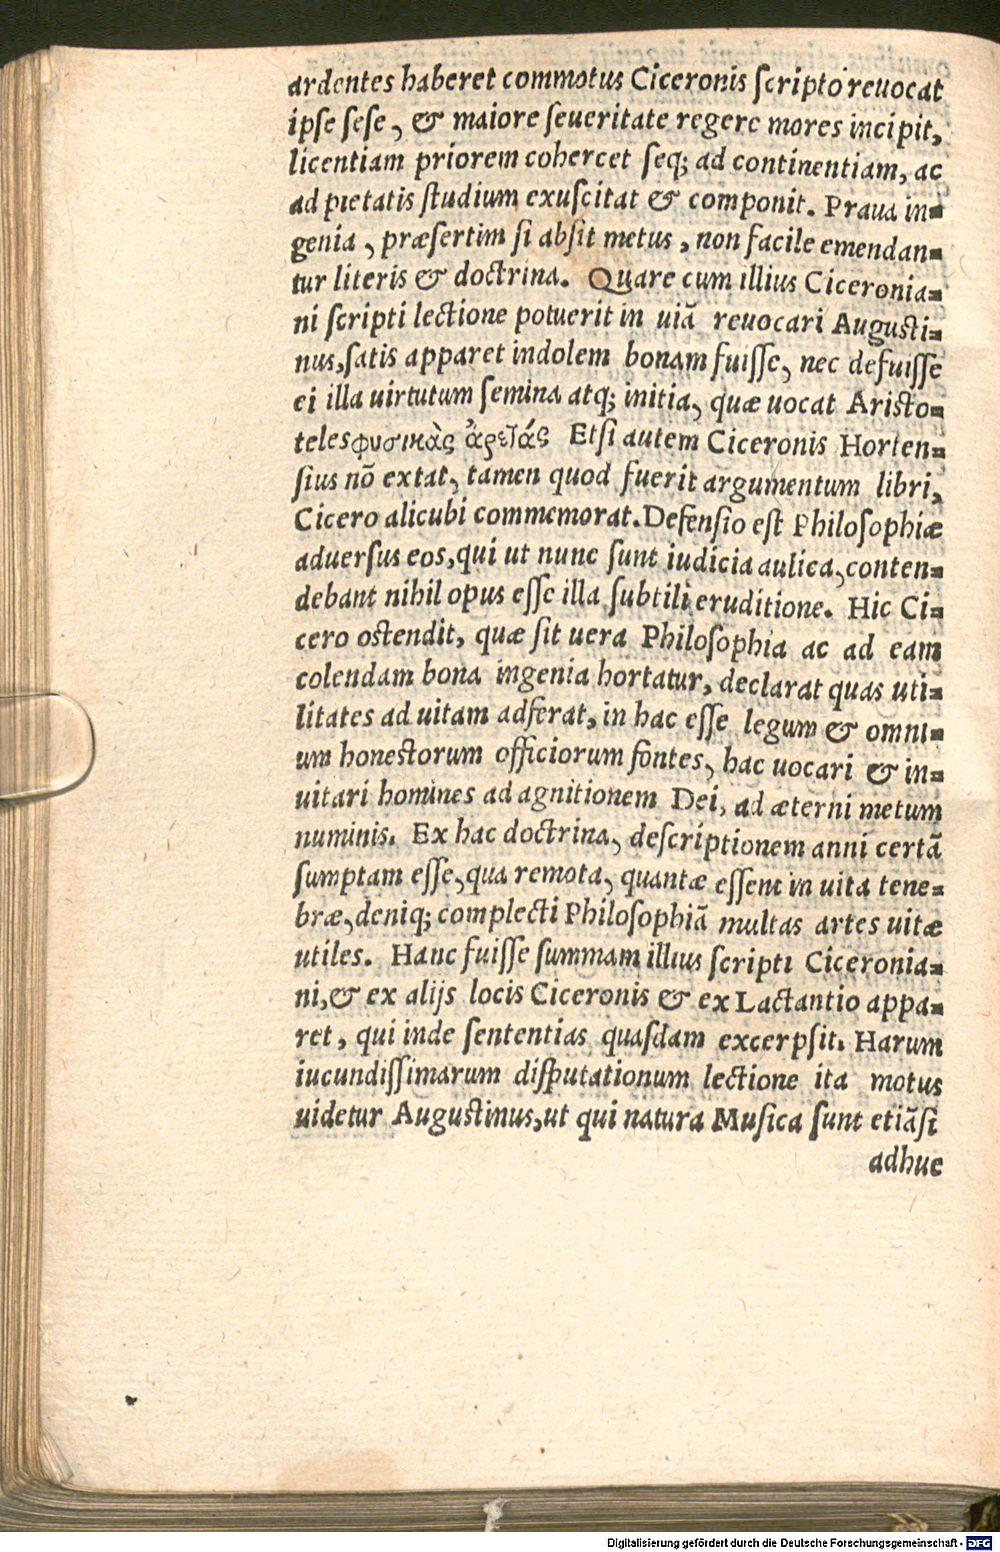 ardentes haberet commotus Ciceronis scripto reuocat
ipse sese, & maiore seueritate regere mores incipit,
licentiam priorem cohercet seq; ad continentiam, ac
ad pietatis studium exuscitat & componit. Praua in-
genia, præsertim si absit metus, non facile emendan-
tur literis & doctrina. Quare cum illius Ciceronia-
ni scripti lectione potuerit in uiã reuocari Augusti-
nus, satis apparet indolem bonam fuisse, nec defuisse
ei illa uirtutum semina atq; initia, quæ uocat Aristo-
teles φυσικὰς ἀρετάς Etsi autem Ciceronis Horten-
sius nõ extat, tamen quod fuerit argumentum libri,
Cicero alicubi commemorat. Defensio est Philosophiæ
aduersus eos, qui ut nunc sunt iudicia aulica, conten-
debant nihil opus esse illa subtili eruditione. Hic Ci-
cero ostendit, quæ sit uera Philosophia ac ad eam
colendam bona ingenia hortatur, declarat quas uti-
litates ad uitam adferat, in hac esse legum & omni-
um honestorum officiorum fontes, hac uocari & in-
uitari homines ad agnitionem Dei, ad æterni metum
numinis. Ex hac doctrina, descriptionem anni certã
sumptam esse, qua remota, quantæ essent in uita tene-
bræ, deniq; complecti Philosophiã multas artes uitæ
utiles. Hanc fuisse summam illius scripti Ciceronia-
ni, & ex alijs locis Ciceronis & ex Lactantio appa-
ret, qui inde sententias quasdam excerpsit. Harum
iucundissimarum disputationum lectione ita motus
uidetur Augustinus, ut qui natura Musica sunt etiãsi
adhuc
Digitalisierung gefördert durch die Deutsche Forschungsgemeinschaft - DFG